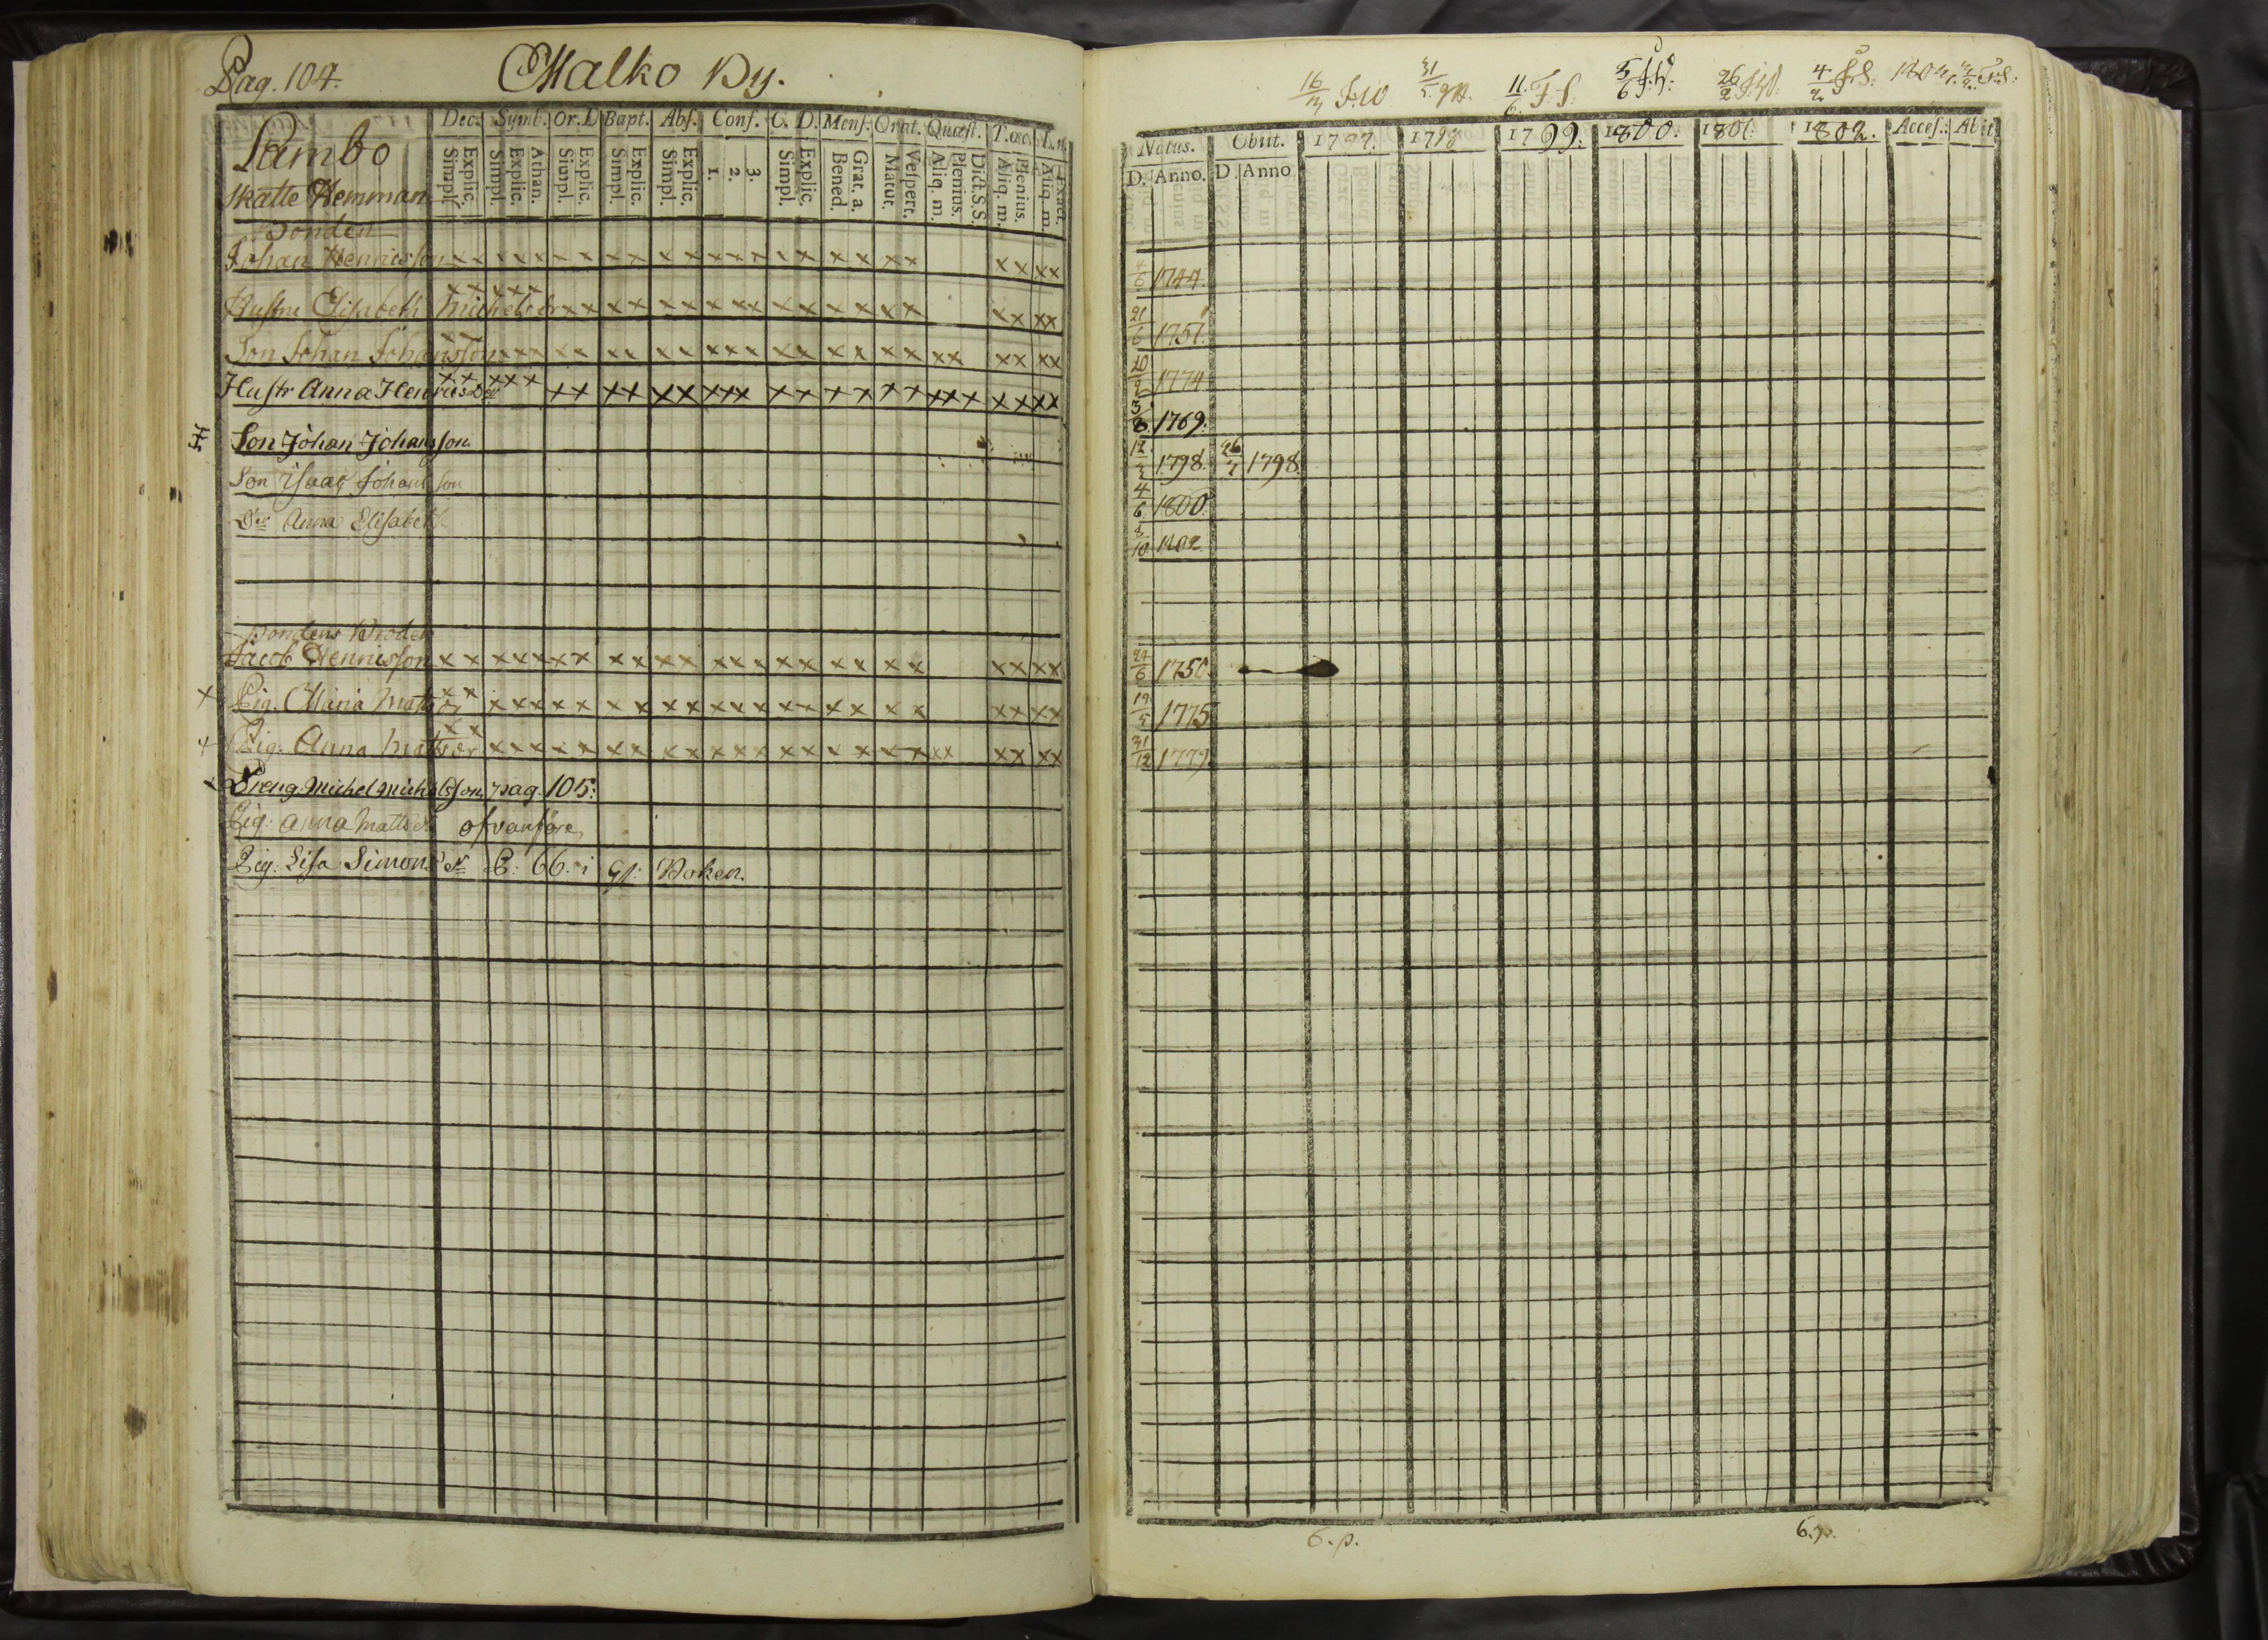 Pag. 104. Malko By.
Lambo
Skatte Hemman
Dec. Symb. Or. D Bapt. Abs. Conf. C. D. Mens. Orat. Quæst. T. œc.
Simpl. Explic. Simpl. Explic. Athan. Simpl. Explic. Simpl. Explic. Simpl. Explic. 1. 2. 3. Simpl. Explic. Bened. Grat. a. Matut. Vespert. Aliq. m. Plenius. Dict. S.S. Aliq. m. Plenius. Aliq. m. Exact.
Bonden
Johan Hennisson x x x x x x x x x x x x x x x x x x x x x x x x
Hustru Elisabeth Michelsdr x x x x x x x x x x x x x x x x x x x x x x x x
Son Johan Johansson x x x x x x x x x x x x x x x x x x x x x x x x x x
Hustr Anna Henricsdr x x x x x x x x x x x x x x x x x x x x x x x x x x x
Son Johan Johansson
Son Isaac Johansson
Dr Anna Elisabet
Bondens Broder
Jacob Hennisson x x x x x x x x x x x x x x x x x x x x x x x x
x Pig. Maria Mattsdr x x x x x x x x x x x x x x x x x x x x x x x x
x Pig. Anna Mattsdr x x x x x x x x x x x x x x x x x x x x x x x x x x
x Dreng Michel Michelsson, pag. 105:
Pig: Anna Mattsdr ofvanföre
Pig: Lisa Simonsdr P: 66. i Gl: Boken.
16/3 31/5 11/6 F. S. 5/6 26/2 4/2 F. S.
Natus. Obiit. 1797. 1798 1799. 1800. 1801. 1802. Acces. Abiit
D. Anno. D. Anno
1744.
21/6 1751.
20/2 1774
3/8 1769.
12/3 1798. 26/7 1798.
4/6 1800.
10 1802
24/6 1750.
19/5 1775
31/12 1779
6. p. 6. p.